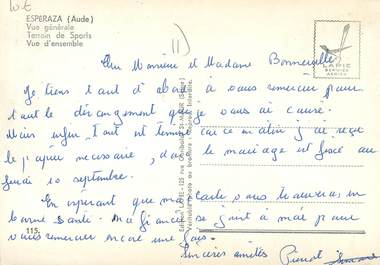 W.E
ESPERAZA (Aude)
Vue générale
Terrain de Sports
Vue d'ensemble
11)
LAPIE
SERVICE
AERIEN
Monsieur et Madame Bonneville
Je tiens tout d'abord à vous remercier pour
tout le dérangement que je vous ai causé.
Mais enfin, tout est terminé car ce matin j'ai reçu
le papier nécessaire, donc le mariage est fixé au
jeudi 10 septembre.
En espérant que ma carte vous trouvera en
bonne santé. Ma fiancée se joint à moi pour
vous remercier encore une fois.
Sincères amitiés
115.